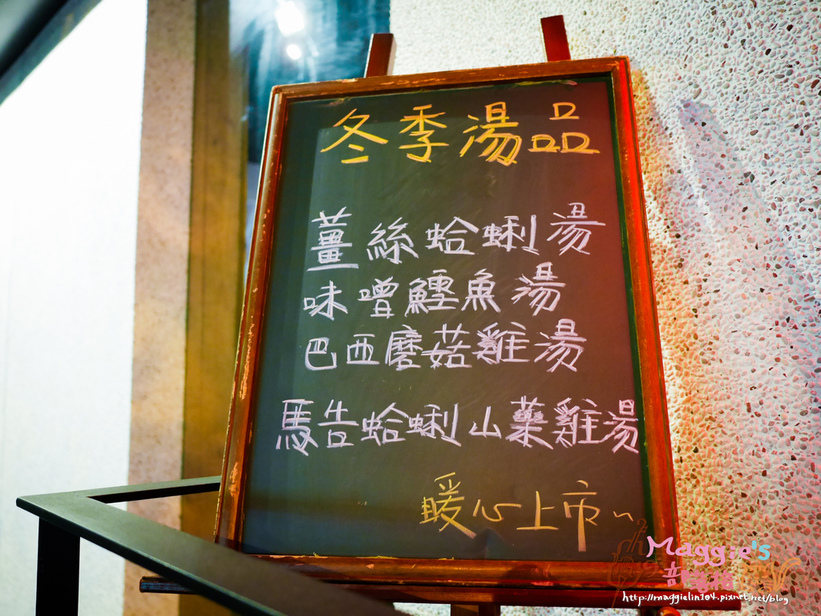 冬季湯品
薑絲蛤蜊湯
味噌鱈魚湯
巴西蘑菇雞湯
馬告蛤蜊山藥雞湯
暖心上市~
Maggie's
http://maggielin104.pixnet.net/blog